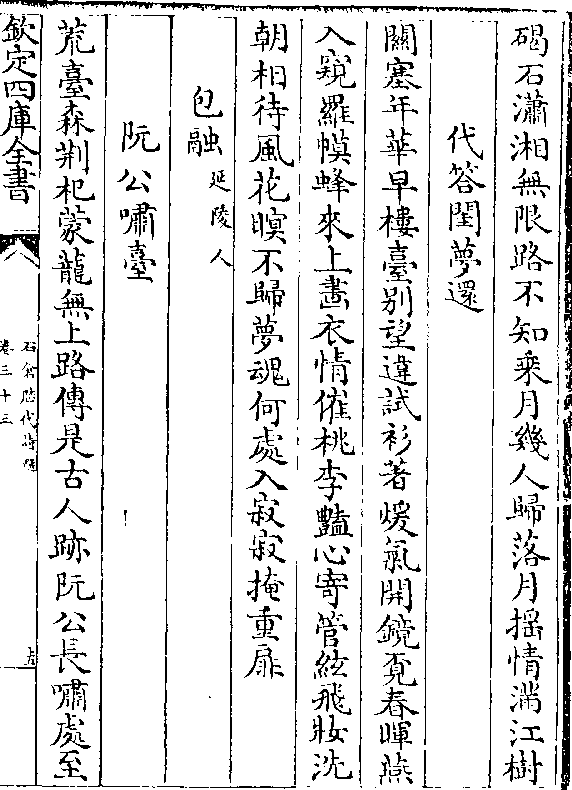 碣石瀟湘無限路不知乗月幾人歸落月揺情滿江樹
代答閨夢還
關塞年華早樓臺别望違試衫著煖氣開鏡覔春暉燕
入窺羅幙蜂來上畵衣情催桃李豔心寄管絃飛妝洗
朝相待風花暝不歸夢魂何處入寂寂掩重扉
包融延陵人
阮公嘯臺
荒臺森荆杞蒙龍無上路傳是古人跡阮公長嘯處至
欽定四庫全書
石倉歷代詩選
卷三十三